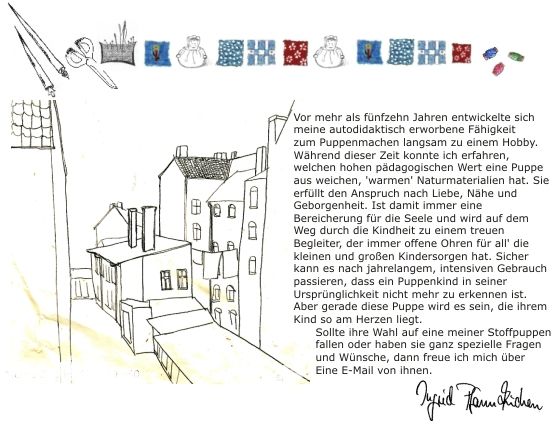 Vor mehr als fünfzehn Jahren entwickelte sich
meine autodidaktisch erworbene Fähigkeit
zum Puppenmachen langsam zu einem Hobby.
Während dieser Zeit konnte ich erfahren,
welchen hohen pädagogischen Wert eine Puppe
aus weichen, 'warmen' Naturmaterialien hat. Sie
erfüllt den Anspruch nach Liebe, Nähe und
Geborgenheit. Ist damit immer eine
Bereicherung für die Seele und wird auf dem
Weg durch die Kindheit zu einem treuen
Begleiter, der immer offene Ohren für all' die
kleinen und großen Kindersorgen hat. Sicher
kann es nach jahrelangem, intensiven Gebrauch
passieren, dass ein Puppenkind in seiner
Ursprünglichkeit nicht mehr zu erkennen ist.
Aber gerade diese Puppe wird es sein, die ihrem
Kind so am Herzen liegt.
Sollte ihre Wahl auf eine meiner Stoffpuppen
fallen oder haben sie ganz spezielle Fragen
und Wünsche, dann freue ich mich über
Eine E-Mail von ihnen.
Ingrid